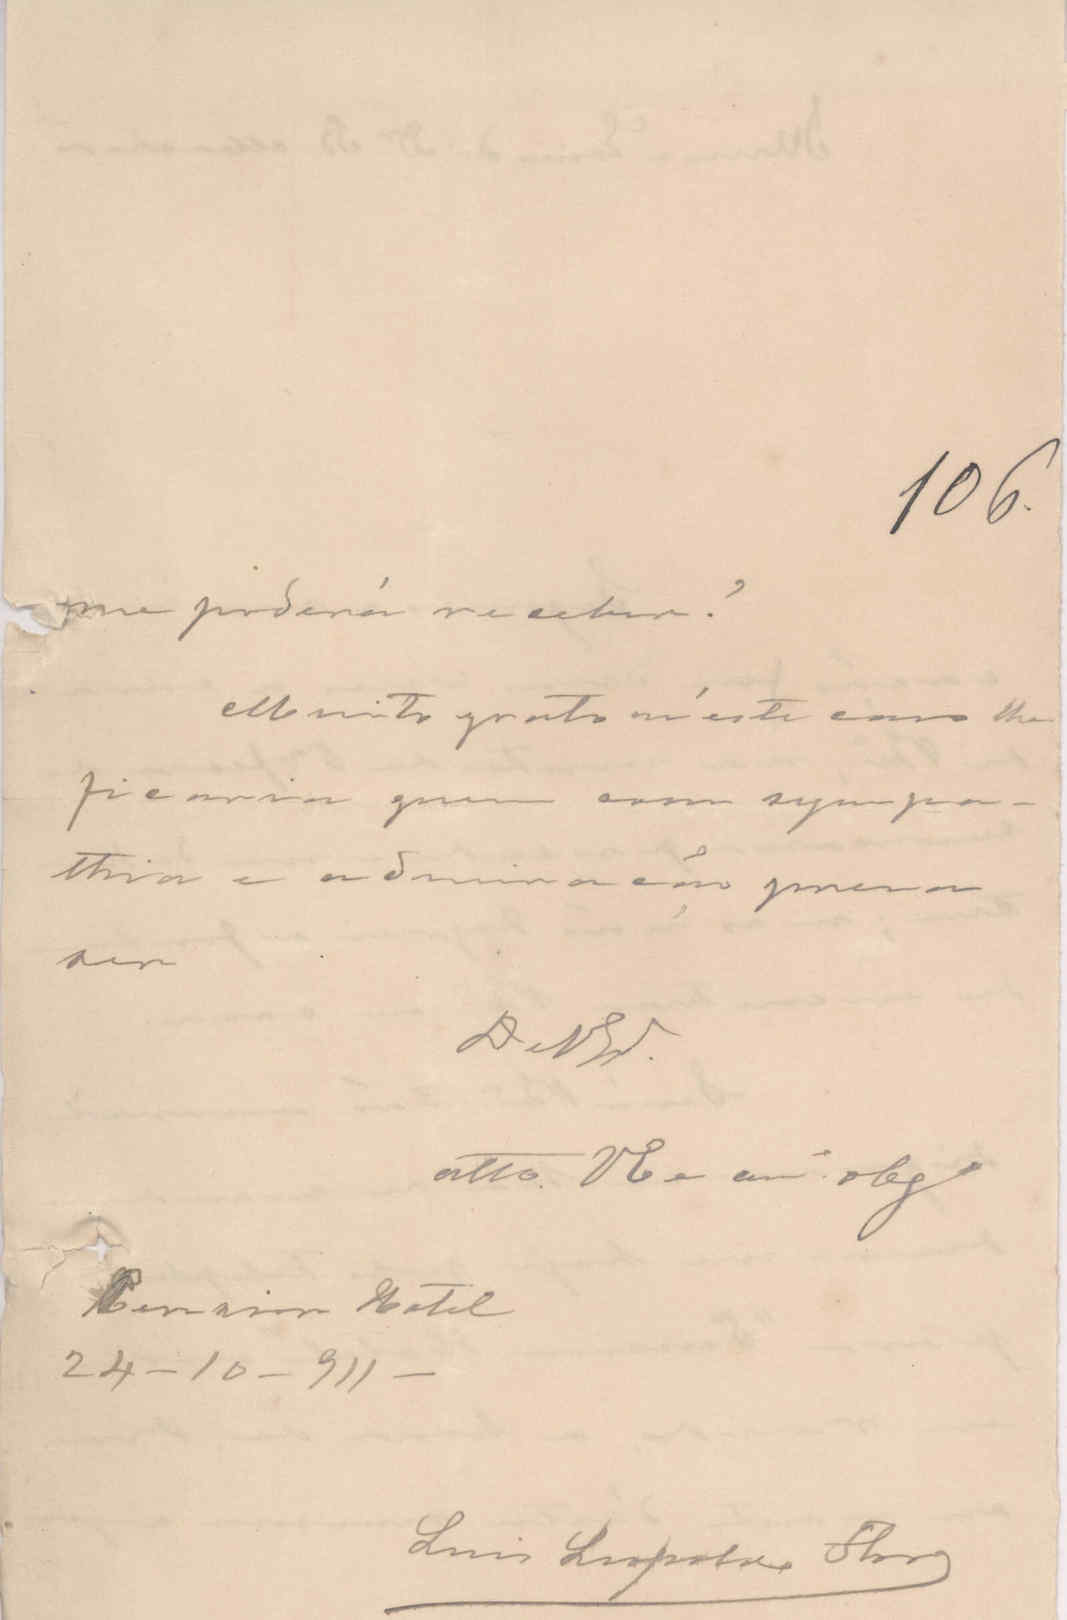 106.
me poderá receber?
Muito grato n'este caso lhe
ficaria quem com sympa-
thia e admiração preza
ser
De V Ex.
atto. Ve e am.º obgº
Pension Hotel
24-10-911-
Luis Leopoldo Flores